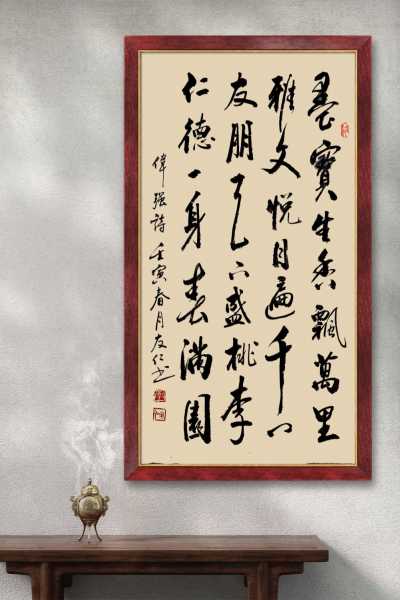 墨寶生香飄萬里
雅文悦目遍千
友朋天下盛桃李
仁德一身春滿園
偉强詩 壬寅春月友仁书